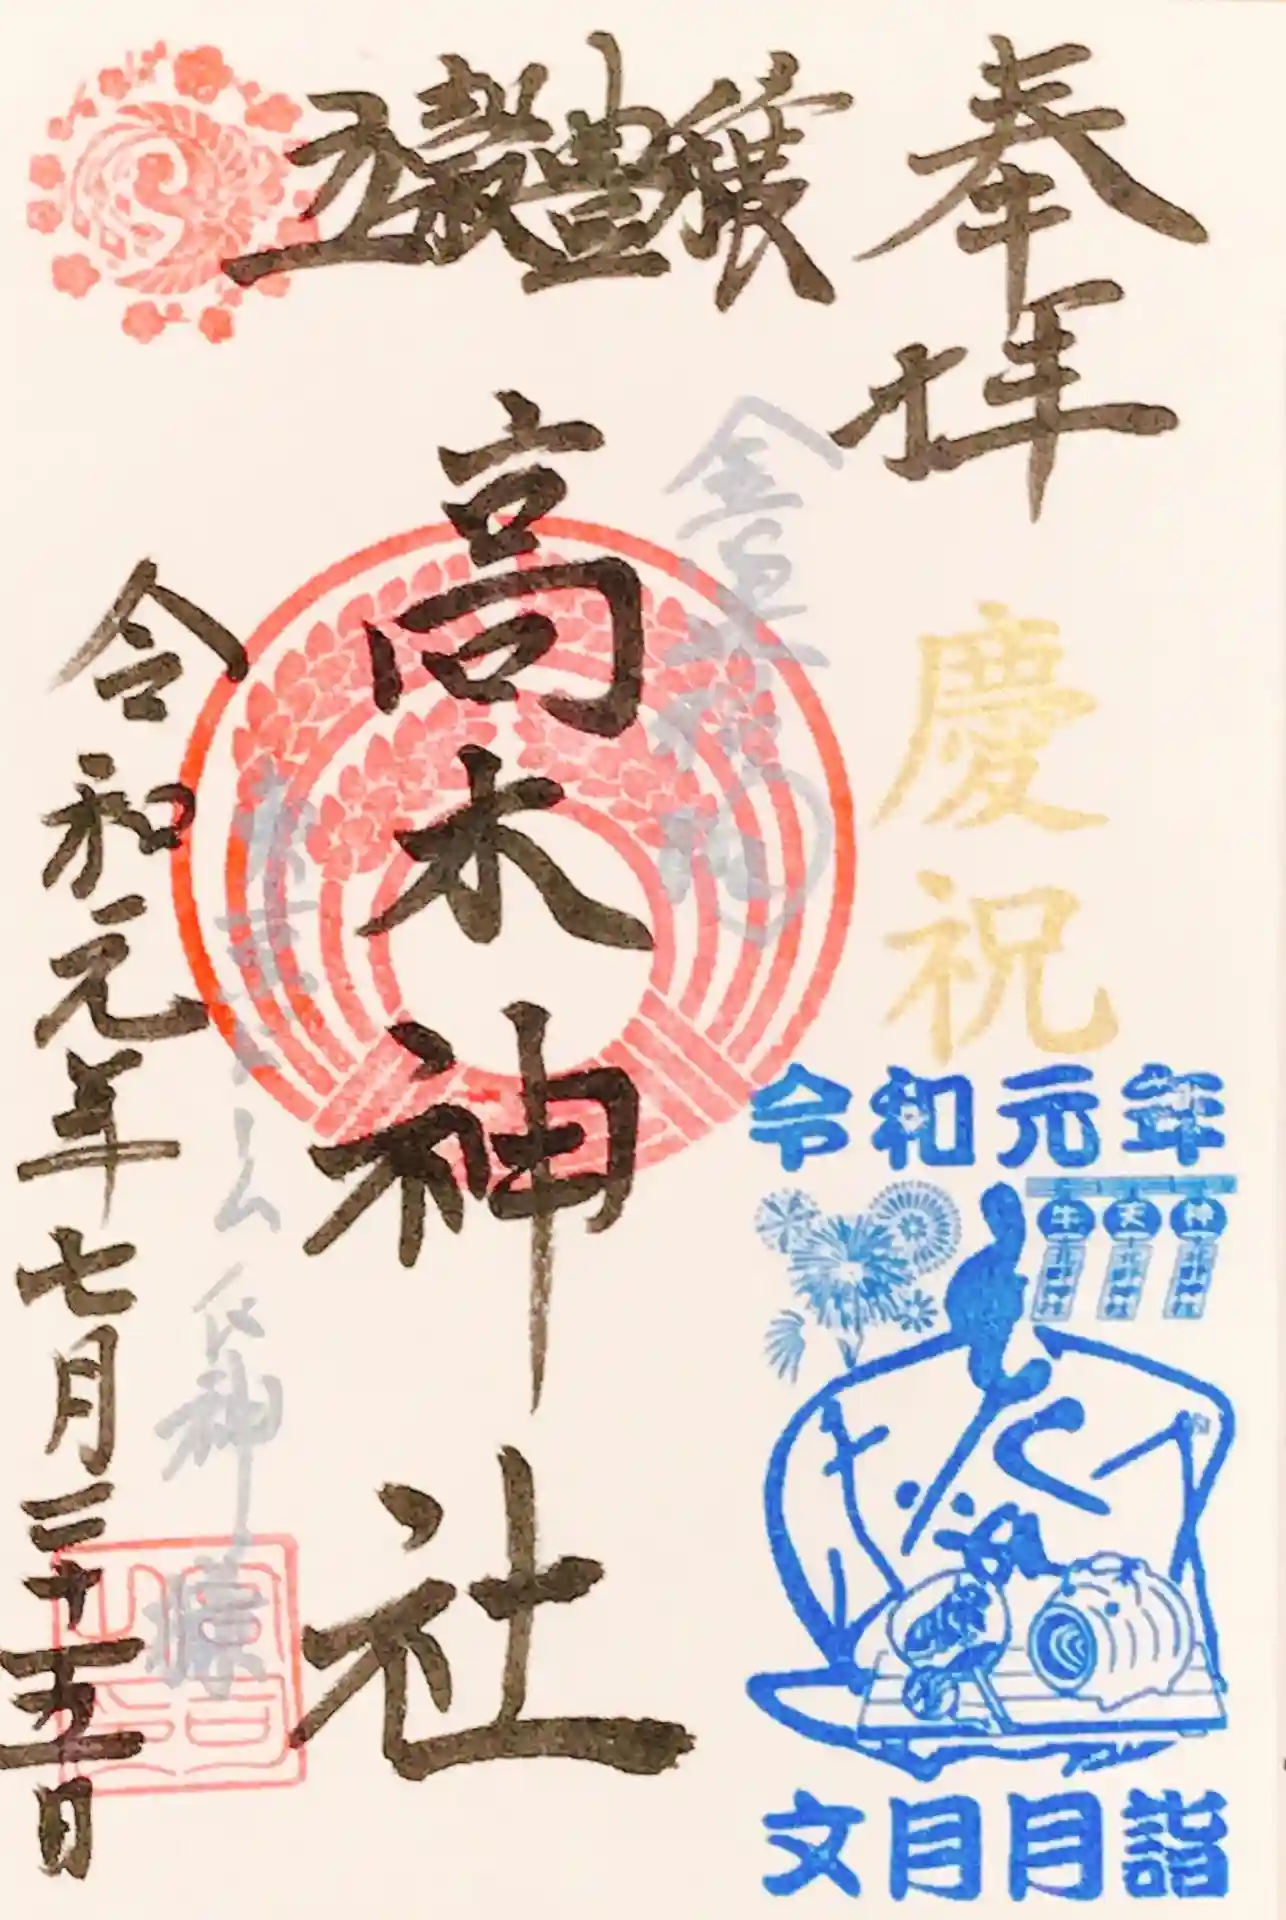 奉拝
慶祝
五穀豊穣
高木神社
令和元年七月二十五日
令和元年
牛 天 神
文月月詣